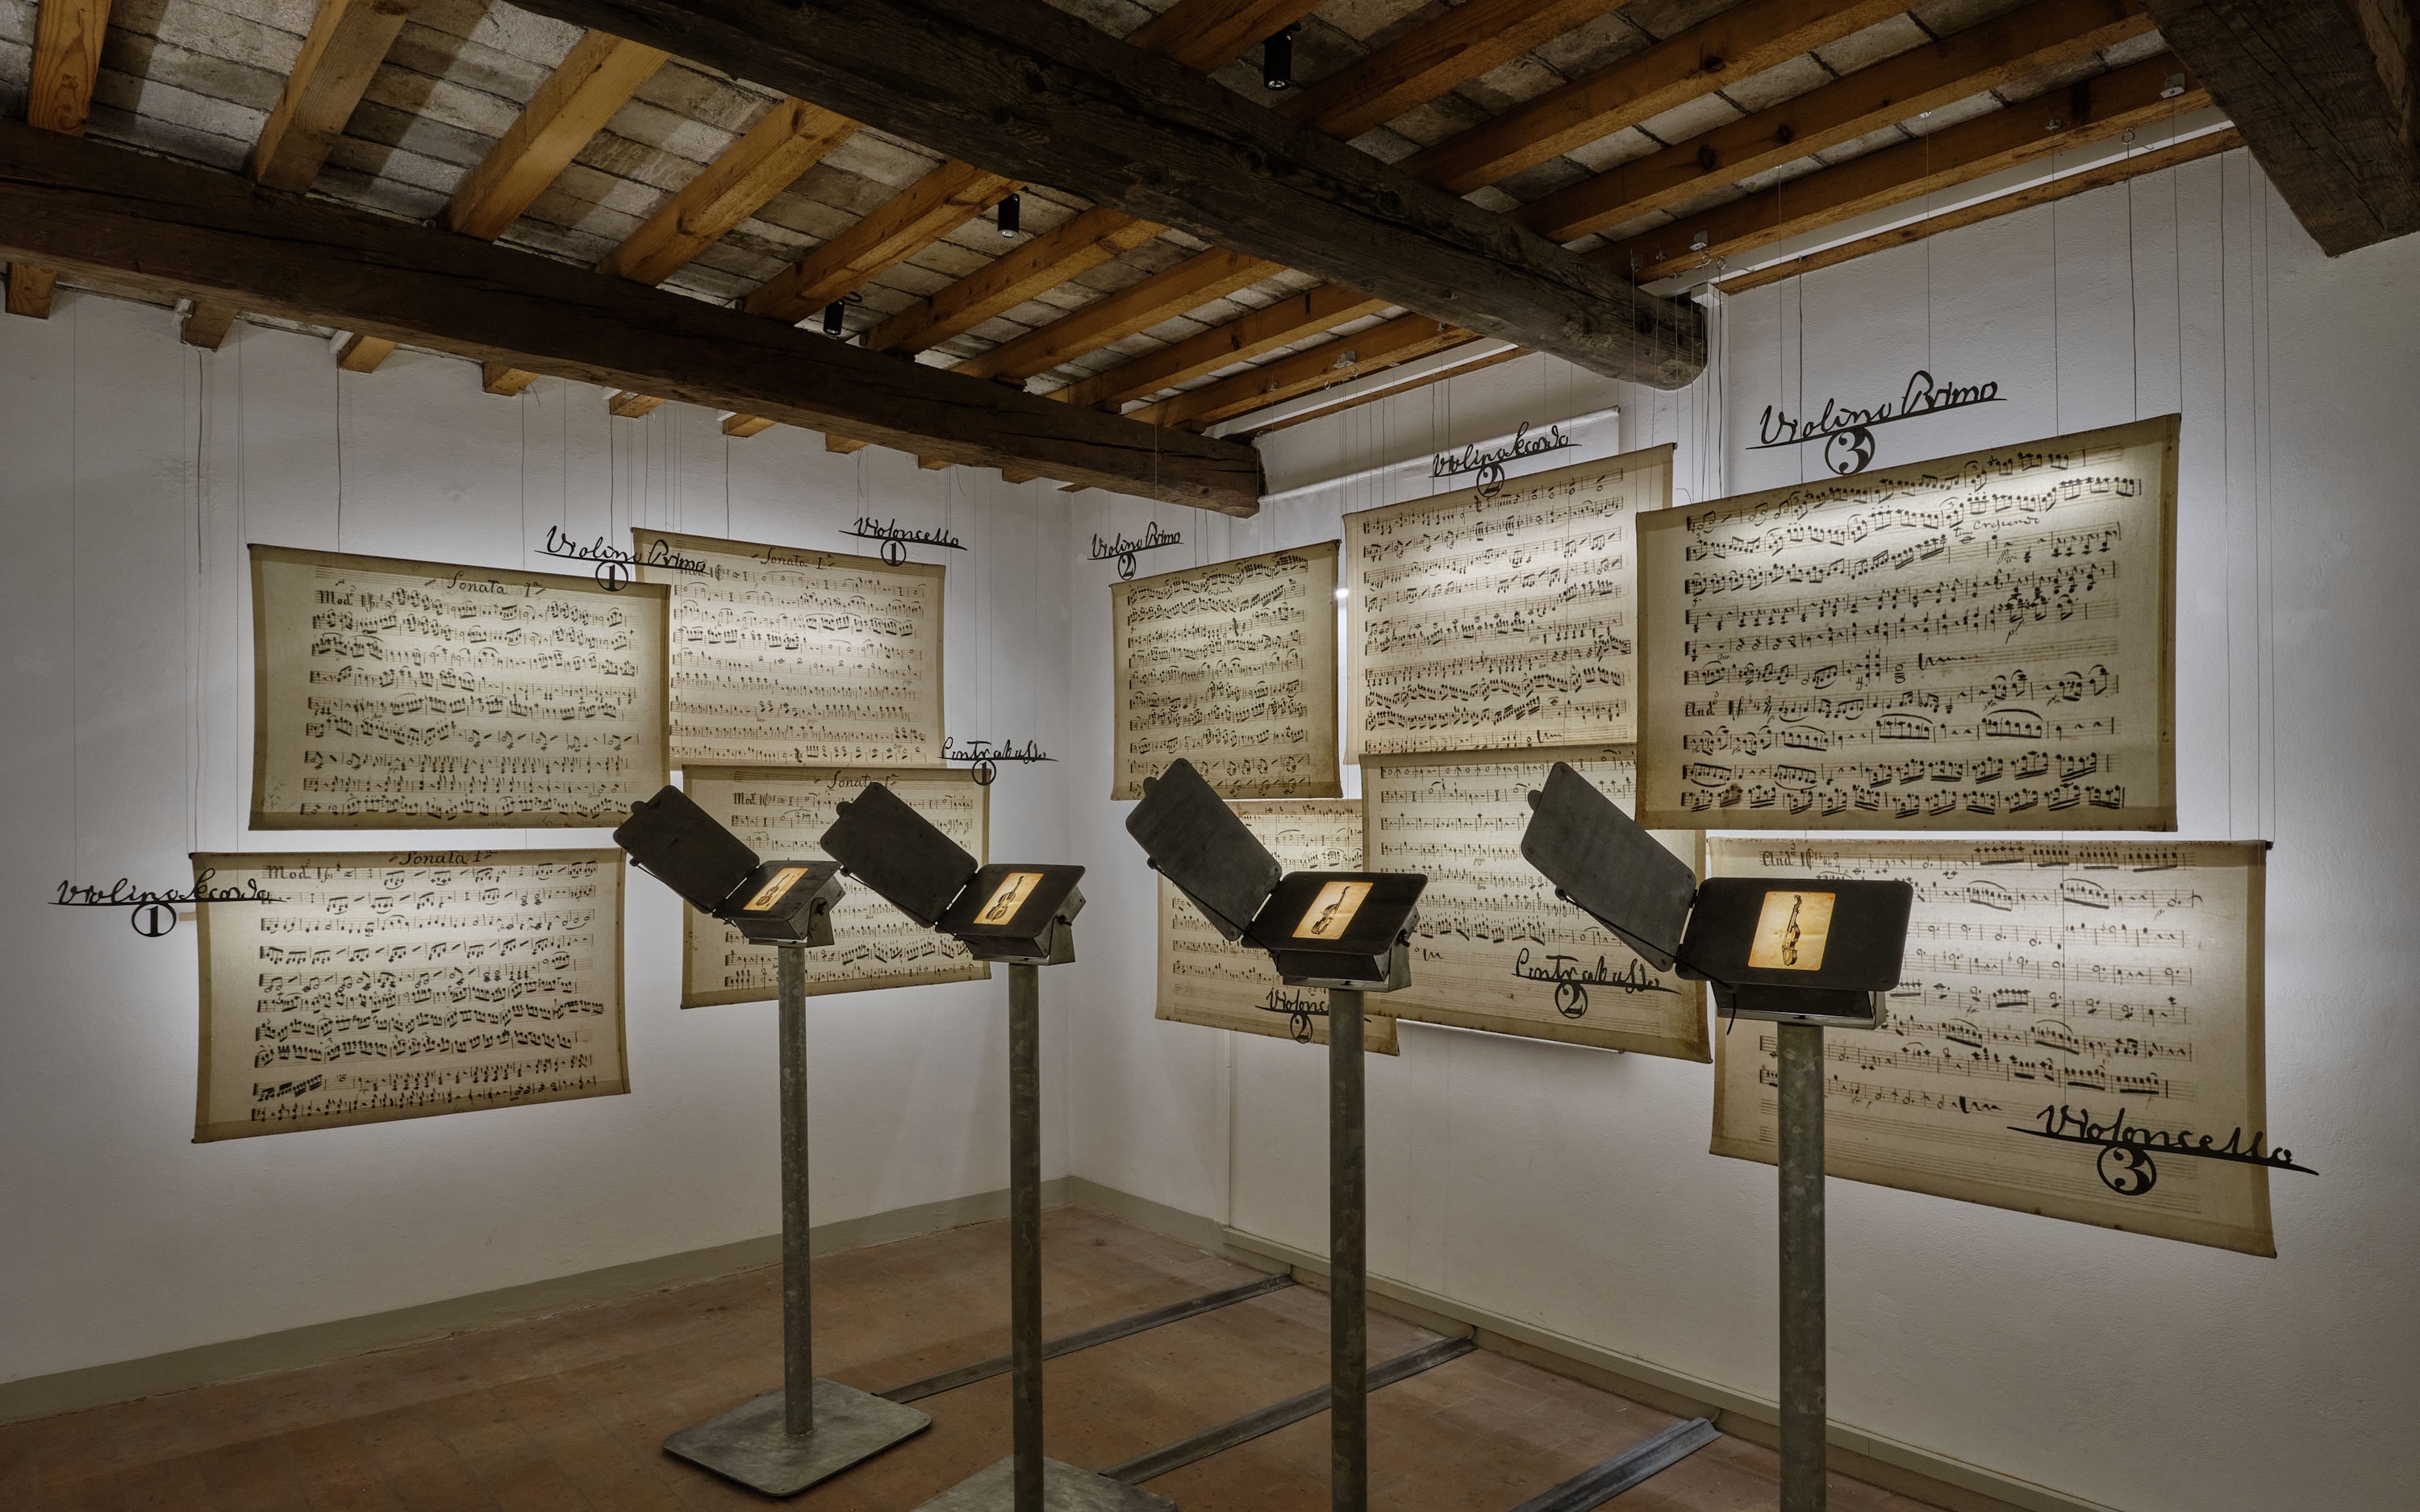 Violino Primo
1
Sonata 1ª
Mod.
Violoncello
1
Sonata 1ª
Mod.
Contrabasso
1
Sonata 1ª
Mod.
Violino Secondo
1
Sonata 1ª
Mod.
Violino Primo
2
Violino Secondo
2
Violino Primo
3
Crescendo
And.
Contrabasso
2
Violonc
2
And.
Violoncello
3